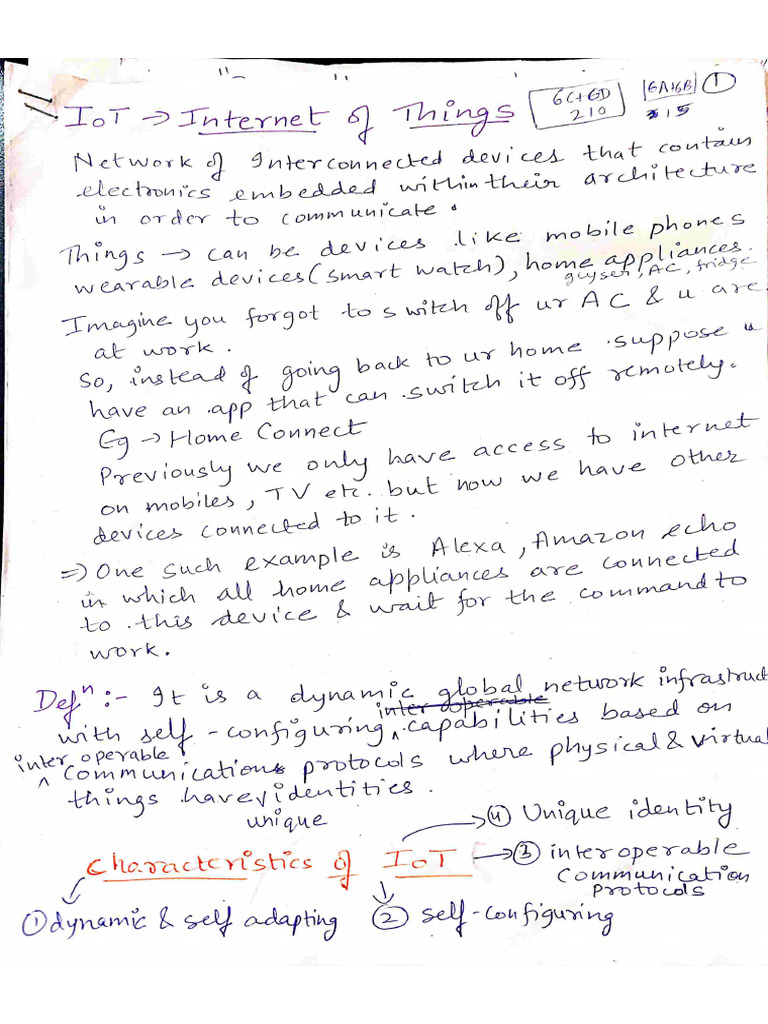 IoT → Internet of Things
6C+6D
210
6A+6B
15
1
Network of Interconnected devices that contain
electronics embedded within their architecture
in order to communicate.
Things → can be devices like mobile phones
wearable devices (smart watch), home appliances.
geyser, AC, fridge
Imagine you forgot to switch off ur AC & u are
at work.
So, instead of going back to ur home suppose u
have an app that can switch it off remotely.
Eg → Home Connect
Previously we only have access to internet
on mobiles, TV etc. but now we have other
devices connected to it.
⇒ One such example is Alexa, Amazon echo
in which all home appliances are connected
to this device & wait for the command to
work.
Defⁿ :- It is a dynamic global network infrastruct
inter operable
with self-configuring ^ capabilities based on
inter operable
^ Communications protocols where physical & virtual
things have ✓ identities.
unique
Characteristics of IoT
→ ④ Unique identity
→ ③ interoperable
Communication
Protocols
① dynamic & self adapting
② self-configuring